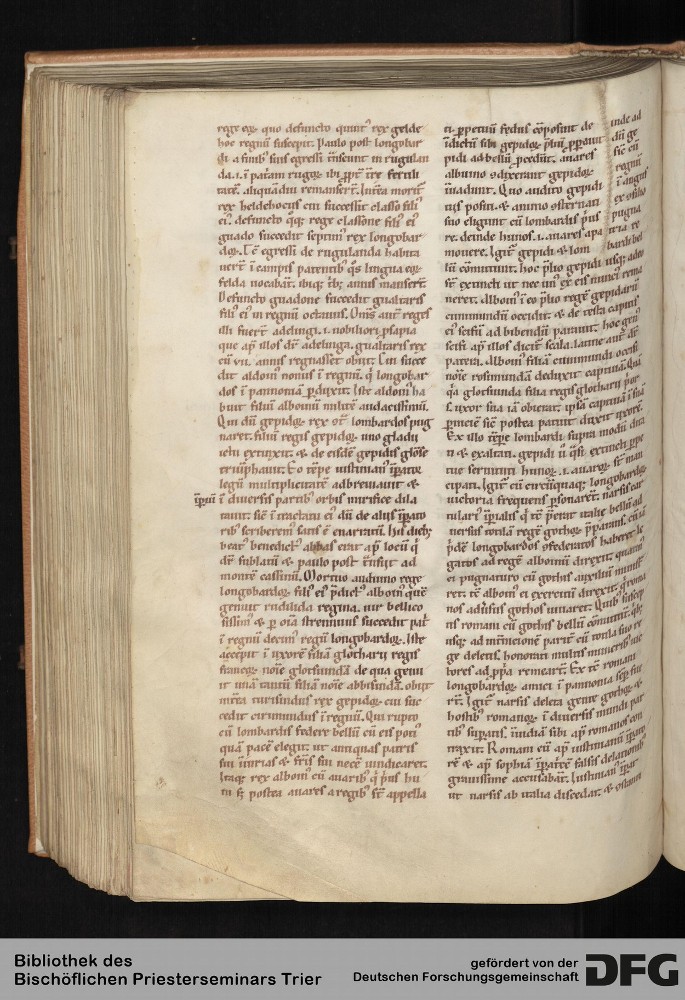 rege eoꝝ quo defuncto quintꝰ rex gelde
hoc regnū suscepit. Paulo post longobar
di a finibꝰ suis egressi cɫseunt in rugulan
da. i. ī patriam rugoꝝ ibi ꝓpt̄ t̄re fertili
tatē aliquādiu remanser̄t. Int̄ea moritᷣ
rex heldehocus cui successit classo filiꝰ
eiꝰ. defuncto qꝫ rege classone filiꝰ eiꝰ
guado succedit septimꝰ rex longobar
doꝝ. egressi de rugulanda habita
uer̄t ī campis patentibꝰ qͥs lingua eoꝝ
felda uocabāt. ibiqꝫ tͥbꝫ annis manser̄t
Defuncto guadone succedit gualtaris
filiꝰ eiꝰ in regnū octauus. Om̄s aut̄ reges
illi fuer̄t adelingi. i. nobiliori ꝓsapia
que ap̄ illos dr̄ adelinga. gualtaris rex
cū .vii. annis regnasset obiit. Cui succe
dit aldoinꝰ nonus ī regnū. qͥ longobar
dos ī pannoniā ꝑduxit. Iste aldoinꝰ ha
buit filiū alboinū militē audacissimū.
Qui dū gepidoꝝ rex 9tͣ lombardos pug
naret. filiū regis gepidoꝝ uno gladii
ictu extinxit. & de eisdē gepidis gl̄ose
triūphauit. Eo tēpe iustinianꝰ īpator
legū multiplicitatē adbreuiauit &
īpiū ī diuersis partibꝰ orbis mirifice dila
tauit. sic̄ ī tractatu eiꝰ dū de aliis īpato
ribꝰ scriberem̄ satis ē enarratū. His diebꝫ
beatꝰ benedictꝰ abbas erat ap̄ locū qͥ
dr̄ sublacū & paulo post tͣnsiit ad
montē cassinū. Mortuo audoino rege
longobardoꝝ filiꝰ eiꝰ p̄dictꝰ alboinꝰ quē
genuit rudilida regina. uir bellico
sissimꝰ & ꝑ oīa strennuus succedit patͥ
ī regnū decimꝰ regū longobardoꝝ. Iste
accepit ī uxorē filiā glotharii regis
francoꝝ noīe glotsiundā de qua genu
it unā tantū filiā noīe albisundā. obiit
int̄ea turisindus rex gepidoꝝ cui suc
cedit cunimundus ī regnū. Qui rupto
cū lombardis federe bellū cū eis potiꝰ
quā pacē elegit. ut antiquas patris
sui iniurias & fr̄is sui necē uindicaret.
Itaqꝫ rex alboinꝰ cū auaribꝰ qͥ pͥus hu
ni sꝫ postea auares a regibꝰ st̄ appella
ti ꝑpetuū fedus cōposuit
īdictū sibi gepidoꝝ
pidi ad bellū ꝓcedūt. auares
alboino 9dixerant gepidoꝝ
inuadunt. Quo audito gepidi
tūs positi. & animo 9sternati
suo eligunt cū lombardis pͥus
re. deinde hunos. i. auares
mouere. Igit̄ gepidi & lom bardi bel
lū cōmittunt. hoc p̄lio gepidi usqꝫ adeo
st̄ extincti ut nec unꝰ ex eis nuncꝰ rema
neret. Alboinꝰ ī eo p̄lio regē gepidarū
cunimundū occidit. & de testa capitis
eiꝰ scifū ad bibendū parauit. hoc genꝰ
scifi ap̄ illos dicit̄ scala. latine aut̄ dr̄
patera. Alboinꝰ filiā cunimundi occisi
noīe rosimundā deduxit captiuā. Qui
qͣ glotsiunda filia regis glotharii pͥor
s. uxor sua iā obierat. ipsā captiuā ī suā
ꝑniciē sic̄ postea patuit duxit uxorē.
Ex illo tēpe lombardi supra modū dita
ti & exaltati. gepidi ū qͣsi extincti ꝑpe
tue seruituti hunoꝝ. i. auaroꝝ st̄ man
cipati. Igit̄ cū cuiꝰcūqꝫ longobardoꝝ
uictoria frequens ꝑsonaret. narsis car
tulariꝰ īpialis qͥ tē p̄erat italie bellū ad
uersus totilā regē gothoꝝ p̄parans. cū iā
p̄dē longobardos 9federatos haberet le
gatos ad regē alboinū direxit. quatinꝰ
ei pugnaturo cū gothis auxiliū ministͣ
ret. tē alboinꝰ ei exercitū direxit. qͥ roma
nos aduersus gothos iuuaret. Quibꝰ suscep
tis romani cū gothis bellū cōmittūt. qͥbꝫ
usqꝫ ad int̄nitionē parit̄ cū totila suo re
ge deletis. honorati multis muneribꝰ uic
tores ad ꝓpͥa remear̄t. Ex tē romani
longobardoꝝ amici ī pannonia semꝑ fue
rūt. Igit̄ narsis deleta gente gothoꝝ &
hostibꝰ romanoꝝ ī diuersis mundi par
tibꝰ supatis. īuidiā sibi ap̄ romanos con
traxit. Romani eū ap̄ iustinianū īpato
rē & ap̄ sophiā īpat̄cē falsis delationibꝰ
grauissime accusabāt. Iustinianꝰ īpar
ut narsis ab italia discedat. &
inde ad
dū ge
sic̄ cū
regnū
ī angus
ex 9silio
pugna
Bibliothek des
Bischöflichen Priesterseminars Trier
gefördert von der
Deutschen Forschungsgemeinschaft
DFG